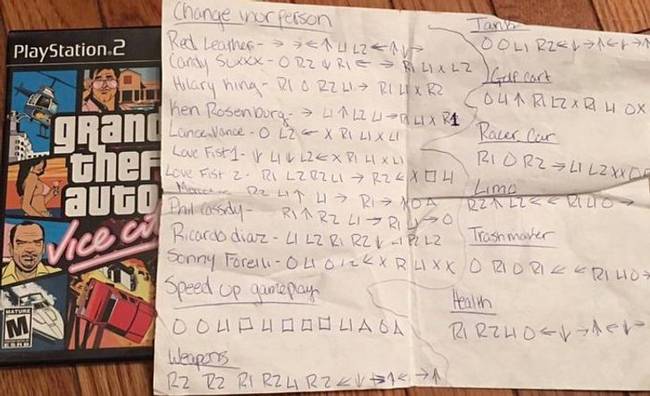 PlayStation 2
gran
thef
auto
Vice ci
MATURE
M
ESRB
Change your person
Red Leather- → → ← ↑ L1 L2 ← ↑ ↓ →
Candy Suxxx - O R2 ↓ R1 ← → R1 L1 x L2
Hilary King- R1 O R2 L1 → R1 L1 x R2
Ken Rosenburg- → L1 ↑ L2 L1 → R1 L1 x R1
Lance Vance - O L2 ← x R1 L1 x L1
Love Fist 1 - ↓ L1 ↓ L2 ← x R1 L1 x L1
Love Fist 2 - R1 L2 R2 L1 → R2 ← X □ L1
R2 L1 ↑ L1 → R1 → ↑ O △
Phil Cassidy- R1 ↑ R2 L1 → R1 L1 → O
Ricardo diaz - L1 L2 R1 R2 ↓ L1 R2 L2
Sonny Forelli - O L1 O L2 ← X R1 L1 X X
Speed up gameplay
O O L1 □ L1 □ □ □ L1 △ O △
Weapons
R2 R2 R1 R2 L1 R2 ← ↓ → ↑ ← ↓ → ↑
Tank
O O L1 R2 ← ↓ → ↑ ← ↓ → ↑
Golf cart
O L1 ↑ R1 L2 X R1 L1 O X
Racer car
R1 O R2 → L1 L2 X X
Limo
R2 ↑ L2 ← ← R1 L1 O →
Trashmaster
O R1 O R1 ← ← R1 L1 O →
Health
R1 R2 L1 O ← ↓ → ↑ ← ↓ → ↑